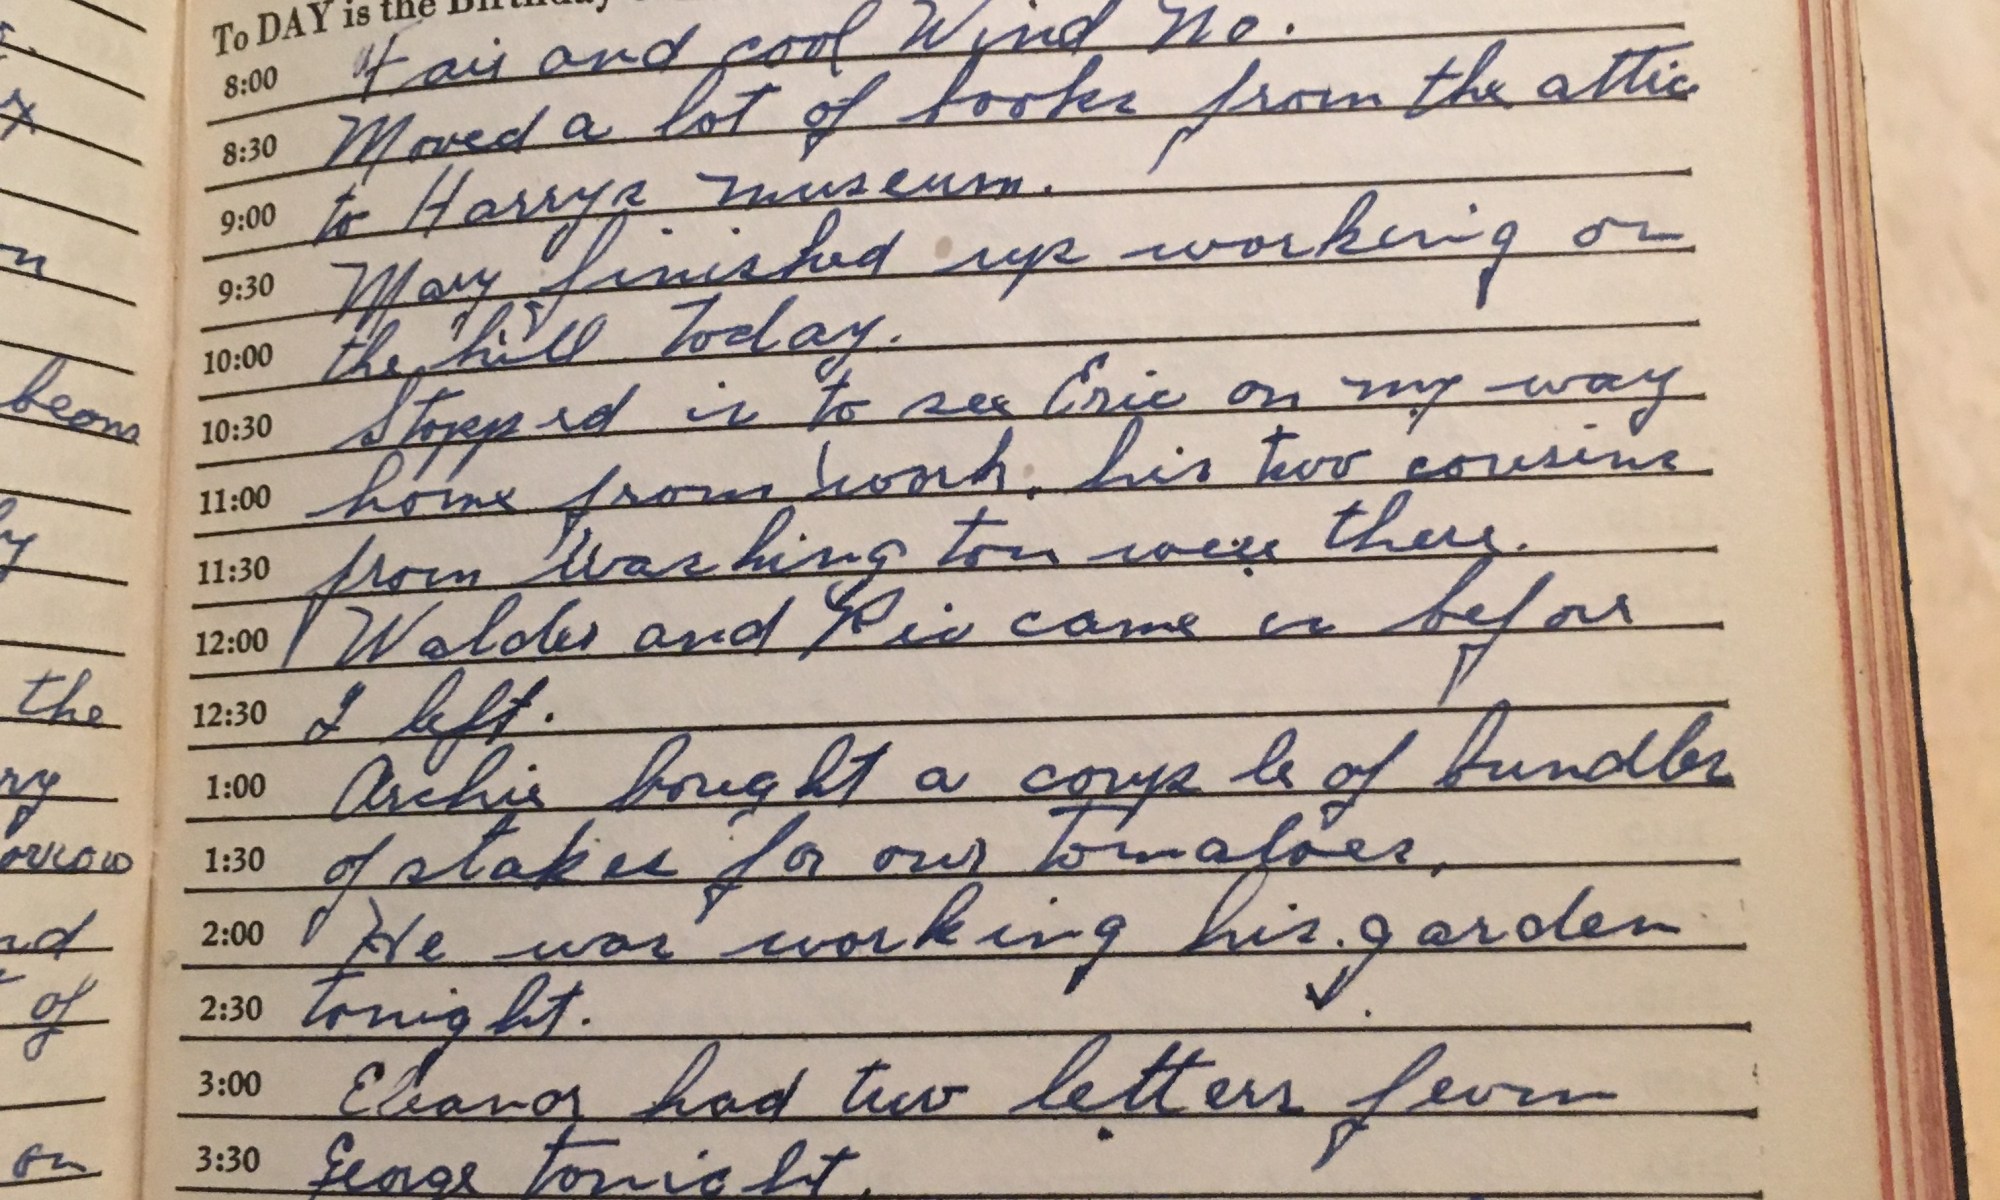 To DAY is the Birthday
8:00 Fair and cool Wind No.
8:30 Moved a lot of books from the attic
9:00 to Harrys museum.
9:30 Mary finished up working on
10:00 the hill today.
10:30 Stopped in to see Eric on my way
11:00 home from work, his two cousins
11:30 from Washington were there.
12:00 Walder and Viv came in before
12:30 I left.
1:00 Archie bought a couple of bundles
1:30 of stakes for our tomatoes,
2:00 He was working his garden
2:30 tonight.
3:00 Eleanor had two letters from
3:30 George tonight.
beans
the
of
on